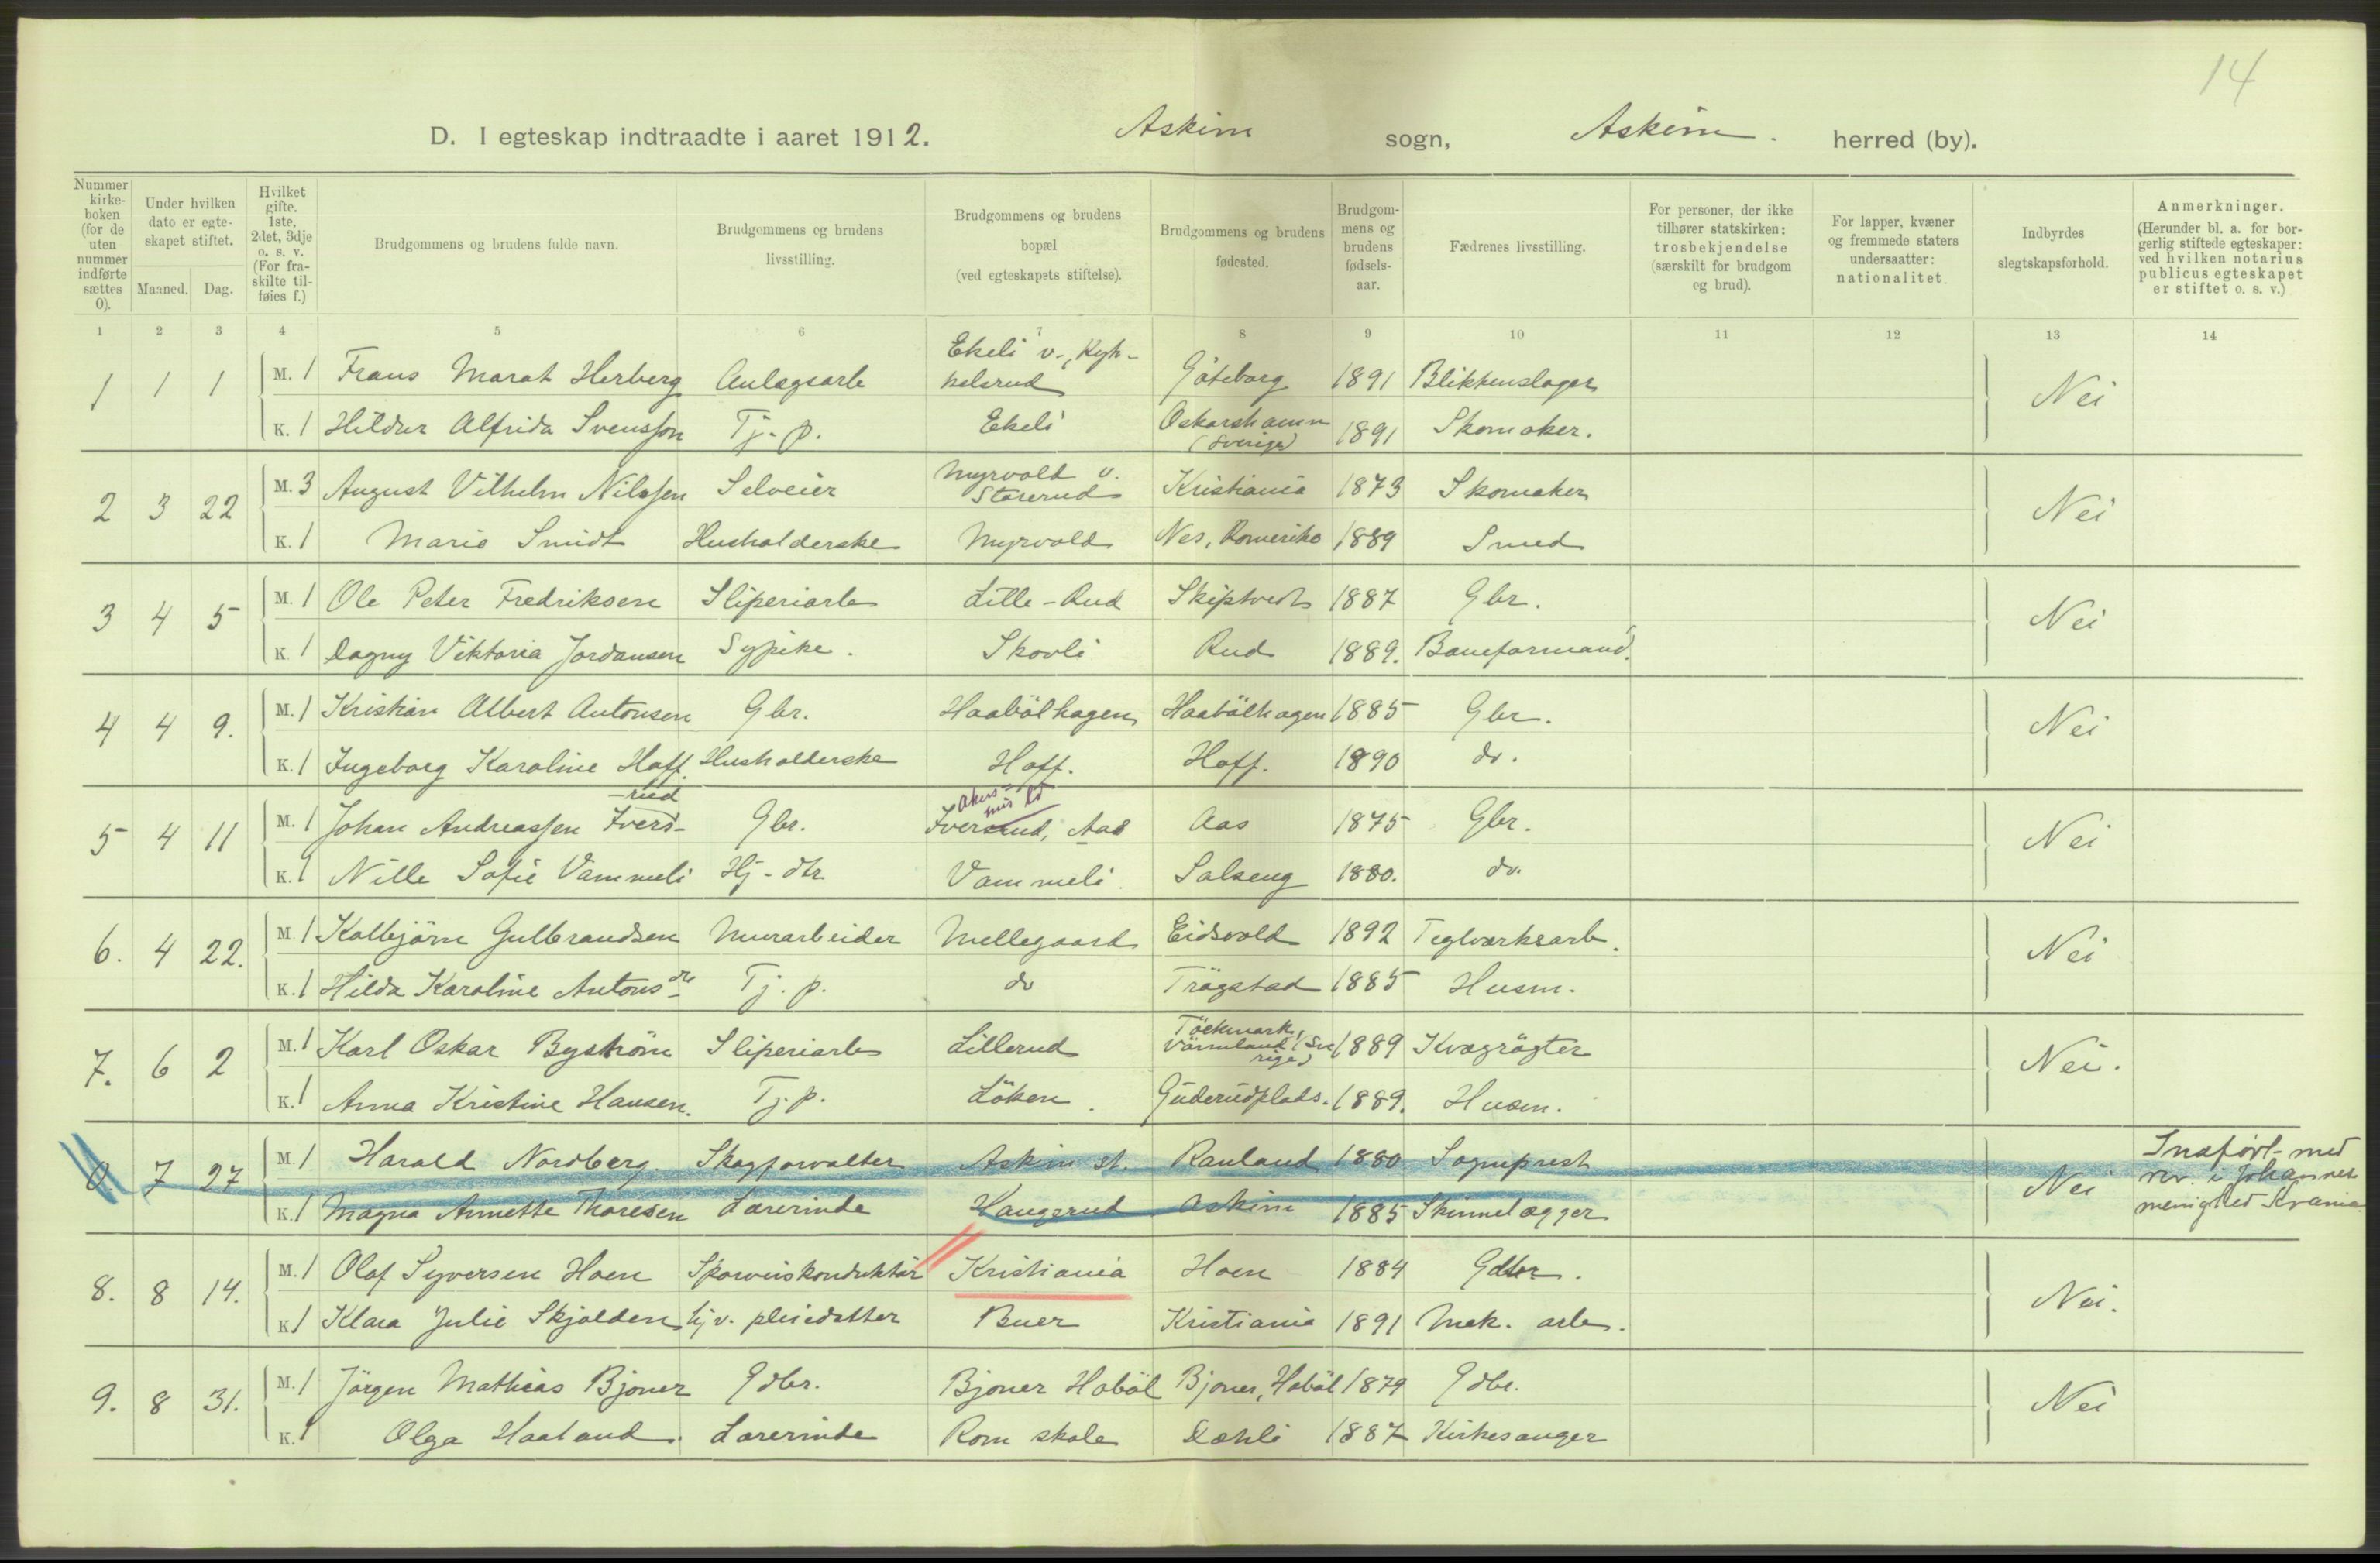 14
D. I egteskap indtraadte i aaret 1912. Askim sogn, Askim. herred (by).
Nummer kirke-boken (for de uten nummer indførte sættes 0).
Under hvilken dato er egte-skapet stiftet.
Maaned. Dag.
Hvilket gifte. 1ste, 2det, 3dje o. s. v. (For fra-skilte til-føies f.)
Brudgommens og brudens fulde navn.
Brudgommens og brudens livsstilling.
Brudgommens og brudens bopæl (ved egteskapets stiftelse).
Brudgommens og brudens fødested.
Brudgom-mens og brudens fødsels-aar.
Fædrenes livsstilling.
For personer, der ikke tilhører statskirken: trosbekjendelse (særskilt for brudgom og brud).
For lapper, kvæner og fremmede staters undersaatter: nationalitet.
Indbyrdes slegtskapsforhold.
Anmerkninger. (Herunder bl. a. for bor-gerlig stiftede egteskaper: ved hvilken notarius publicus egteskapet er stiftet o. s. v.)
1 2 3 4 5 6 7 8 9 10 11 12 13 14
1 1 1 M. 1 Frans Marat Herberg Anlægsarb Ekeli v., Kyk-kelsrud Göteborg 1891 Blikkenslager Nei
K. 1 Hildur Alfrida Svensson Tj. p. Ekeli Oskarshamn (Sverige) 1891 Skomaker.
2 3 22 M. 3 August Vilhelm Nilssen Selveier Myrvold v. Starerud Kristiania 1873 Skomaker Nei
K. 1 Marie Smidt Husholderske Myrvold Nes, Romerike 1889 Smed
3 4 5 M. 1 Ole Peter Fredriksen Sliperiarb Lille-Rud Skiptvedt 1887 Gbr. Nei
K. 1 Dagny Viktoria Jordansen Sypike. Skovli Rud 1889. Baneformand.
4 4 9. M. 1 Kristian Albert Antonsen Gbr. Haabölhagen Haabölhagen 1885 Gbr. Nei
K. 1 Ingeborg Karoline Hoff. Husholderske Hoff. Hoff. 1890 do.
5 4 11 M. 1 Johan Andreassen Ivers-rud Gbr. Iversrud, Aas Akers-hus Aas 1875 Gbr. Nei
K. 1 Nille Sofie Vammeli Hj-dtr Vammeli Salseng 1880. do.
6. 4 22. M 1 Kolbjörn Gulbrandsen Murarbeider Mellegaard Eidsvold 1892 Teglværksarb. Nei
K. 1 Hilda Karoline Antonsdtr Tj. p. do Trögstad 1885 Husm.
7. 6 2 M. 1 Karl Oskar Byström Sliperiarb Lillerud Töckmark, Värmland (Sverige) 1889 Kvægrögter Nei.
K. 1 Anna Kristine Hansen. Tj. p. Löken. Guderudplads. 1889. Husm.
0 7 27 M. 1 Harald Nordberg. Skogforvalter Askim st. Rauland 1880 Sogneprest Nei Indført-med rev. i Johannes menighed Krania.
K. 1 Magna Annette Thoresen Lærerinde Haugerud Askim 1885 Skinnelægger
8. 8 14. M. 1 Olaf Syversen Hoen Sporveiskonduktör Kristiania Hoen 1884 Gdbr. Nei.
K 1 Klara Julie Skjolden hjv. pleiedatter Buer Kristiania 1891 Mek. arb.
9. 8 31. M. 1 Jörgen Mathias Bjoner Gdbr. Bjoner Haböl Bjoner, Haböl 1879 Gdbr. Nei
K. 1 Olga Haaland. Lærerinde Rom skole Dæhli 1887 Kirkesanger